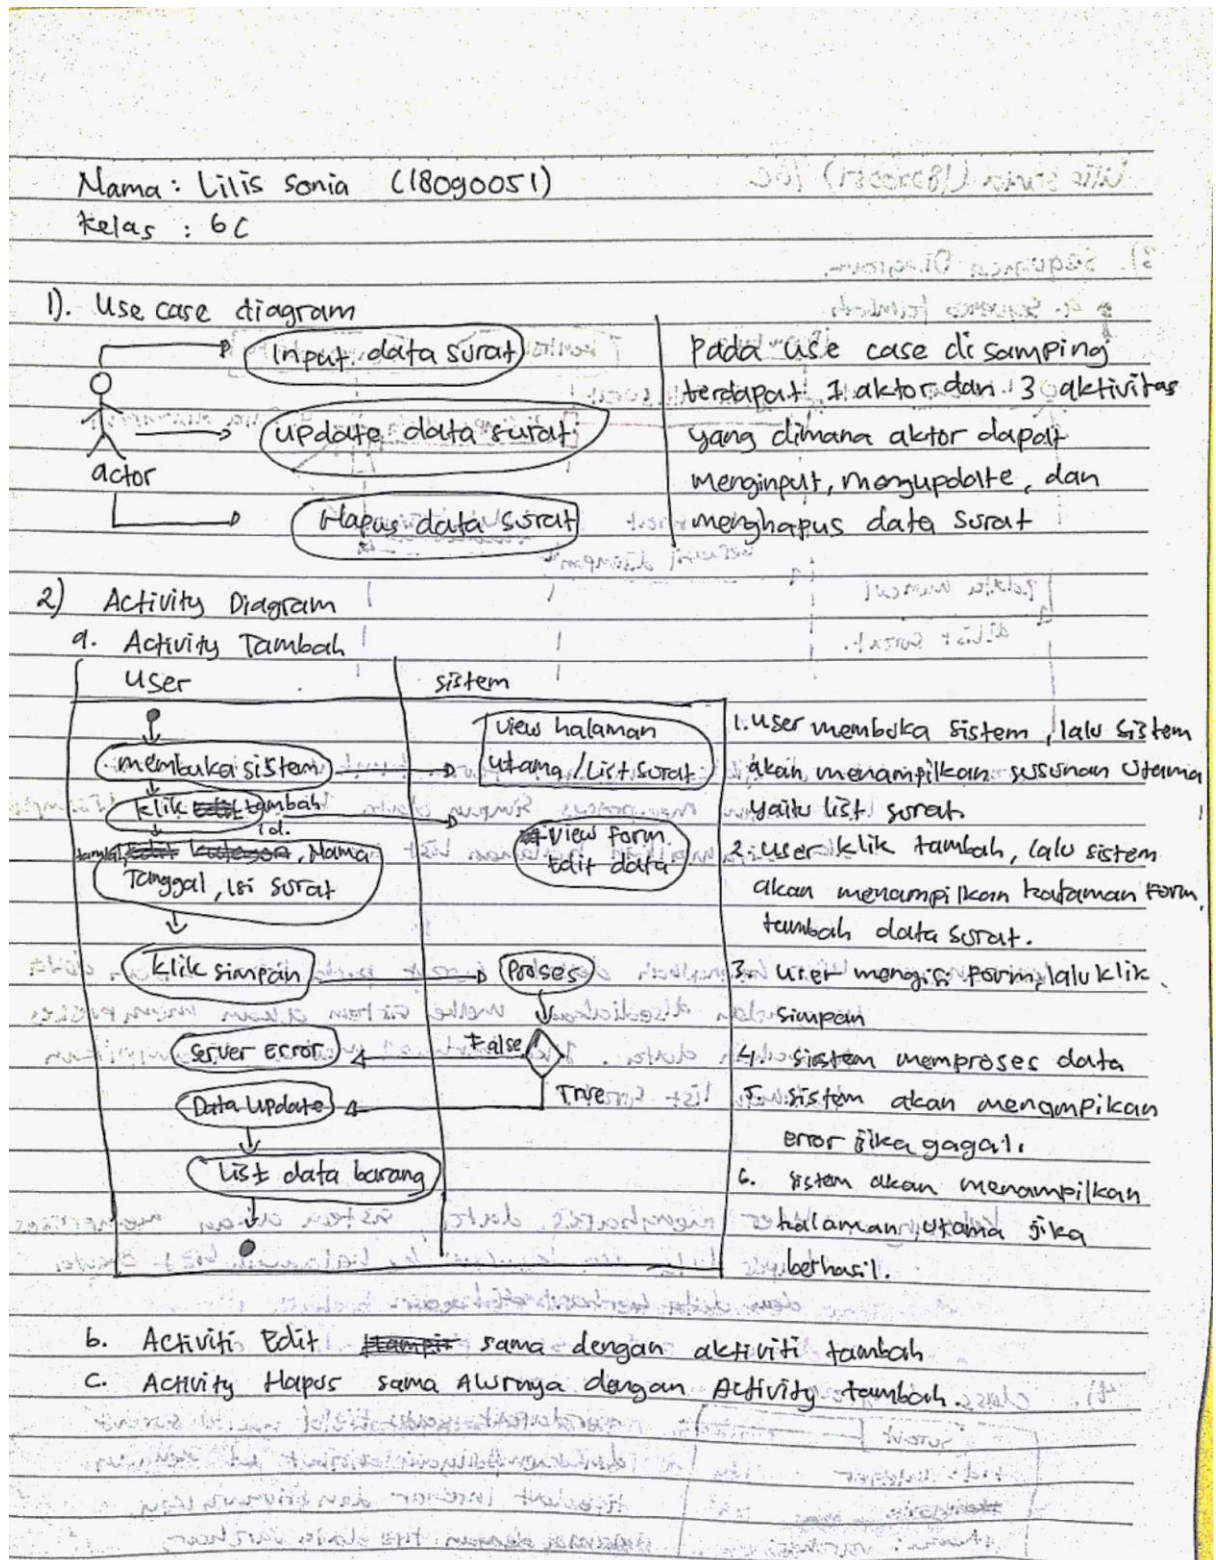 Nama : Lilis Sonia (18090051)
Kelas : 6C
1). Use case diagram
Input data surat
update data surat
actor
Hapus data surat
Pada use case di samping
terdapat 1 aktor dan 3 aktivitas
yang dimana aktor dapat
menginput, mengupdate, dan
menghapus data surat
2) Activity Diagram
a. Activity Tambah
User
sistem
membuka sistem
view halaman
utama / List surat
klik tambah
view form
Edit data
tambah id. , Nama
Tanggal, isi surat
klik simpan
Proses
False
server error
True
Data Update
List data barang
1. User membuka sistem, lalu sistem
akan menampilkan susunan Utama
yaitu list surat.
2. User klik tambah, lalu sistem
akan menampilkan halaman form
tambah data surat.
3. user mengisi form, lalu klik
simpan
4. sistem memproses data
5. sistem akan mengampikan
error jika gagal.
6. sistem akan menampilkan
halaman utama jika
berhasil.
b. Activiti Edit sama dengan aktiviti tambah
c. Activity Hapus sama Alurnya dengan Activity tambah.